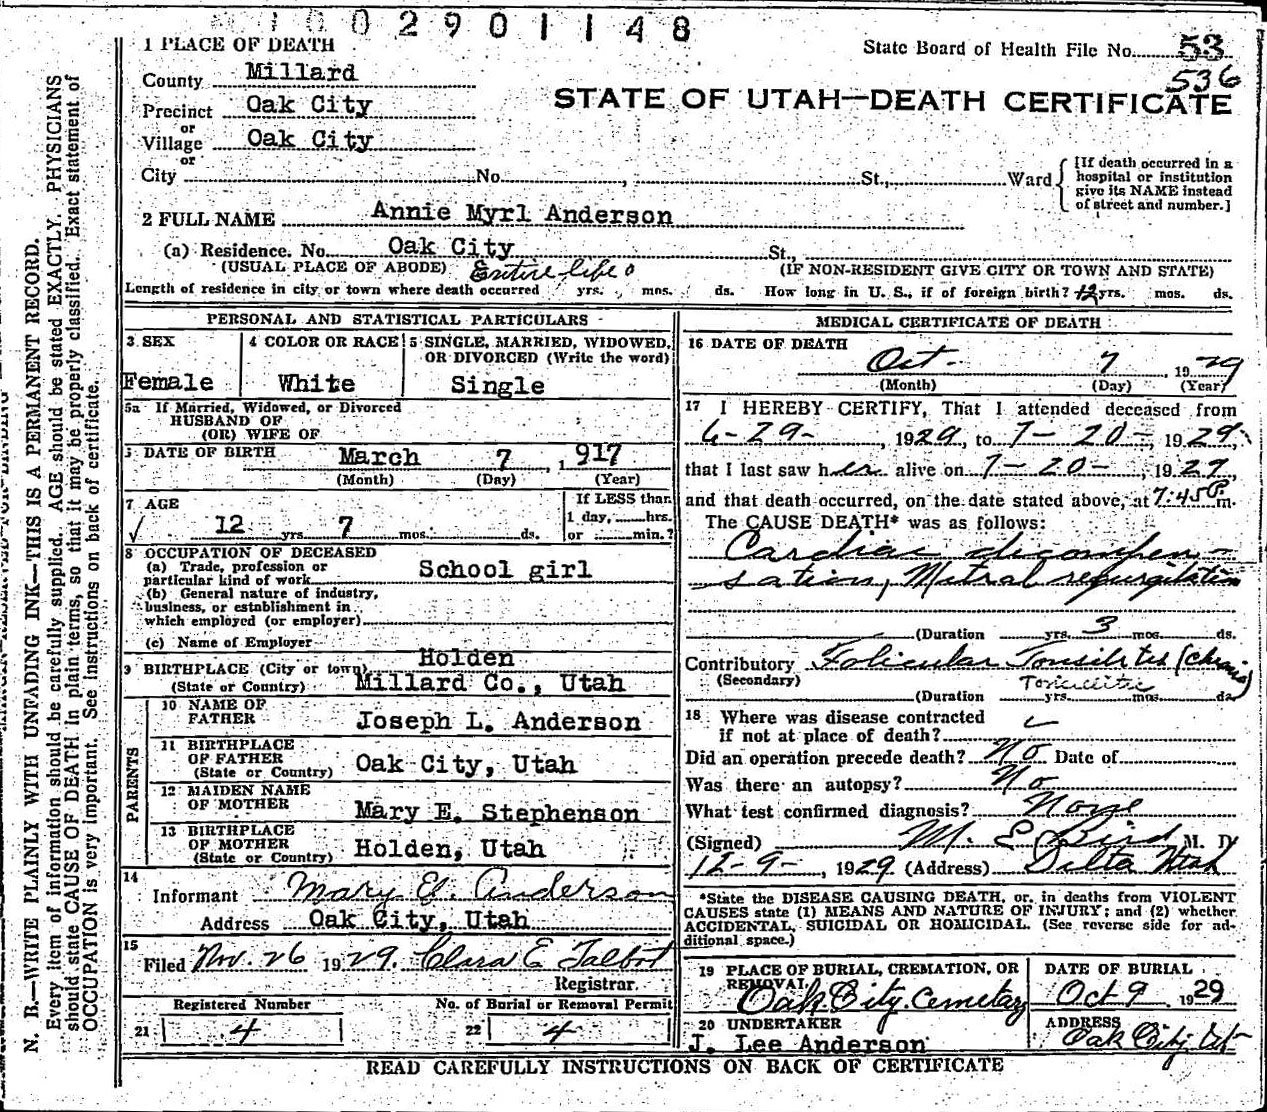 002901148
1 PLACE OF DEATH
State Board of Health File No. 53
536
County Millard
STATE OF UTAH—DEATH CERTIFICATE
Precinct Oak City
or
Village Oak City
or
City No. , St., Ward
[If death occurred in a
hospital or institution
give its NAME instead
of street and number.]
2 FULL NAME Annie Myrl Anderson
(a) Residence. No. Oak City St.,
(USUAL PLACE OF ABODE) Entire life (IF NON-RESIDENT GIVE CITY OR TOWN AND STATE)
Length of residence in city or town where death occurred yrs. mos. ds. How long in U. S., if of foreign birth? 12 yrs. mos. ds.
PERSONAL AND STATISTICAL PARTICULARS
3 SEX
Female
4 COLOR OR RACE
White
5 SINGLE, MARRIED, WIDOWED,
OR DIVORCED (Write the word)
Single
5a If Married, Widowed, or Divorced
HUSBAND OF
(OR) WIFE OF
DATE OF BIRTH March 7, 1917
(Month) (Day) (Year)
7 AGE
12 yrs. 7 mos. ds.
If LESS than
1 day, hrs.
or min.?
8 OCCUPATION OF DECEASED
(a) Trade, profession or
particular kind of work School girl
(b) General nature of industry,
business, or establishment in
which employed (or employer)
(c) Name of Employer
9 BIRTHPLACE (City or town) Holden
(State or Country) Millard Co., Utah
PARENTS
10 NAME OF
FATHER Joseph L. Anderson
11 BIRTHPLACE
OF FATHER
(State or Country) Oak City, Utah
12 MAIDEN NAME
OF MOTHER Mary E. Stephenson
13 BIRTHPLACE
OF MOTHER
(State or Country) Holden, Utah
14
Informant Mary E. Anderson
Address Oak City, Utah
15
Filed Nov. 26 1929. Clara E Talbot
Registrar.
Registered Number No. of Burial or Removal Permit
21 4 22 4
MEDICAL CERTIFICATE OF DEATH
16 DATE OF DEATH
Oct. 7, 1929
(Month) (Day) (Year)
17 I HEREBY CERTIFY, That I attended deceased from
6-29-, 1929, to 7-20-, 1929,
that I last saw her alive on 7-20-, 1929,
and that death occurred, on the date stated above, at 7:45 P. m.
The CAUSE DEATH* was as follows:
Cardiac decompen-
sation, Mitral regurgitation
(Duration yrs. 3 mos. ds.
Contributory Folicular Tonsilitis
(Secondary)
(Duration yrs. mos. ds.
18 Where was disease contracted
if not at place of death?
Did an operation precede death? No Date of
Was there an autopsy? No
What test confirmed diagnosis? None
(Signed) M. E. Bird M. D.
12-9-, 1929 (Address) Delta Utah
*State the DISEASE CAUSING DEATH, or, in deaths from VIOLENT
CAUSES state (1) MEANS AND NATURE OF INJURY; and (2) whether
ACCIDENTAL, SUICIDAL OR HOMICIDAL. (See reverse side for ad-
ditional space.)
19 PLACE OF BURIAL, CREMATION, OR
REMOVAL
Oak City Cemetary
DATE OF BURIAL
Oct 9, 1929
20 UNDERTAKER
J. Lee Anderson
ADDRESS
Oak City, Ut
READ CAREFULLY INSTRUCTIONS ON BACK OF CERTIFICATE
N. B.—WRITE PLAINLY WITH UNFADING INK—THIS IS A PERMANENT RECORD.
Every item of information should be carefully supplied. AGE should be stated EXACTLY. PHYSICIANS
should state CAUSE OF DEATH in plain terms, so that it may be properly classified. Exact statement of
OCCUPATION is very important. See instructions on back of certificate.